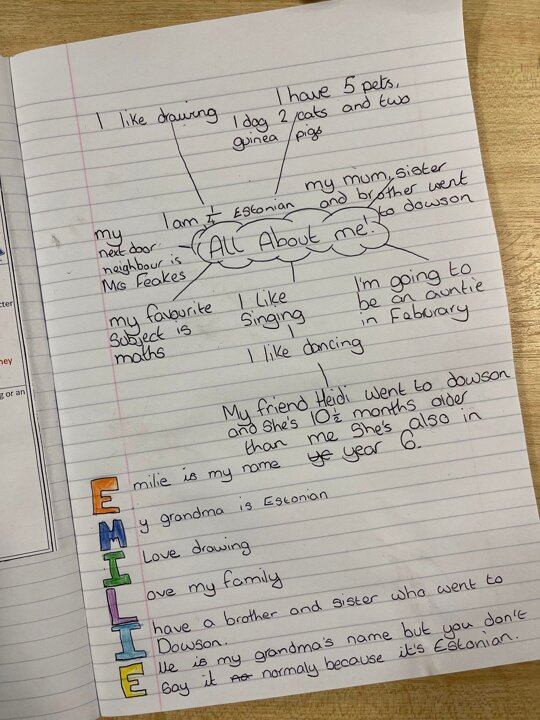 I like drawing
I have 5 pets,
1 dog 2 cats and two
guinea pigs
I am 1/4 Estonian
my mum, sister
and brother went
to dowson
my
next door
neighbour is
Mrs Feakes
All About me!
my favourite
subject is
maths
I Like
Singing
I'm going to
be an auntie
in Faburary
I like dancing
My friend Heidi went to dowson
and she's 10 1/2 months older
than me She's also in
ye year 6.
Emilie is my name
My grandma is Estonian
I Love drawing
Love my family
I have a brother and sister who went to
Dowson.
Elle is my grandma's name but you don't
say it normaly because it's Estonian.
cter
ney
g or an